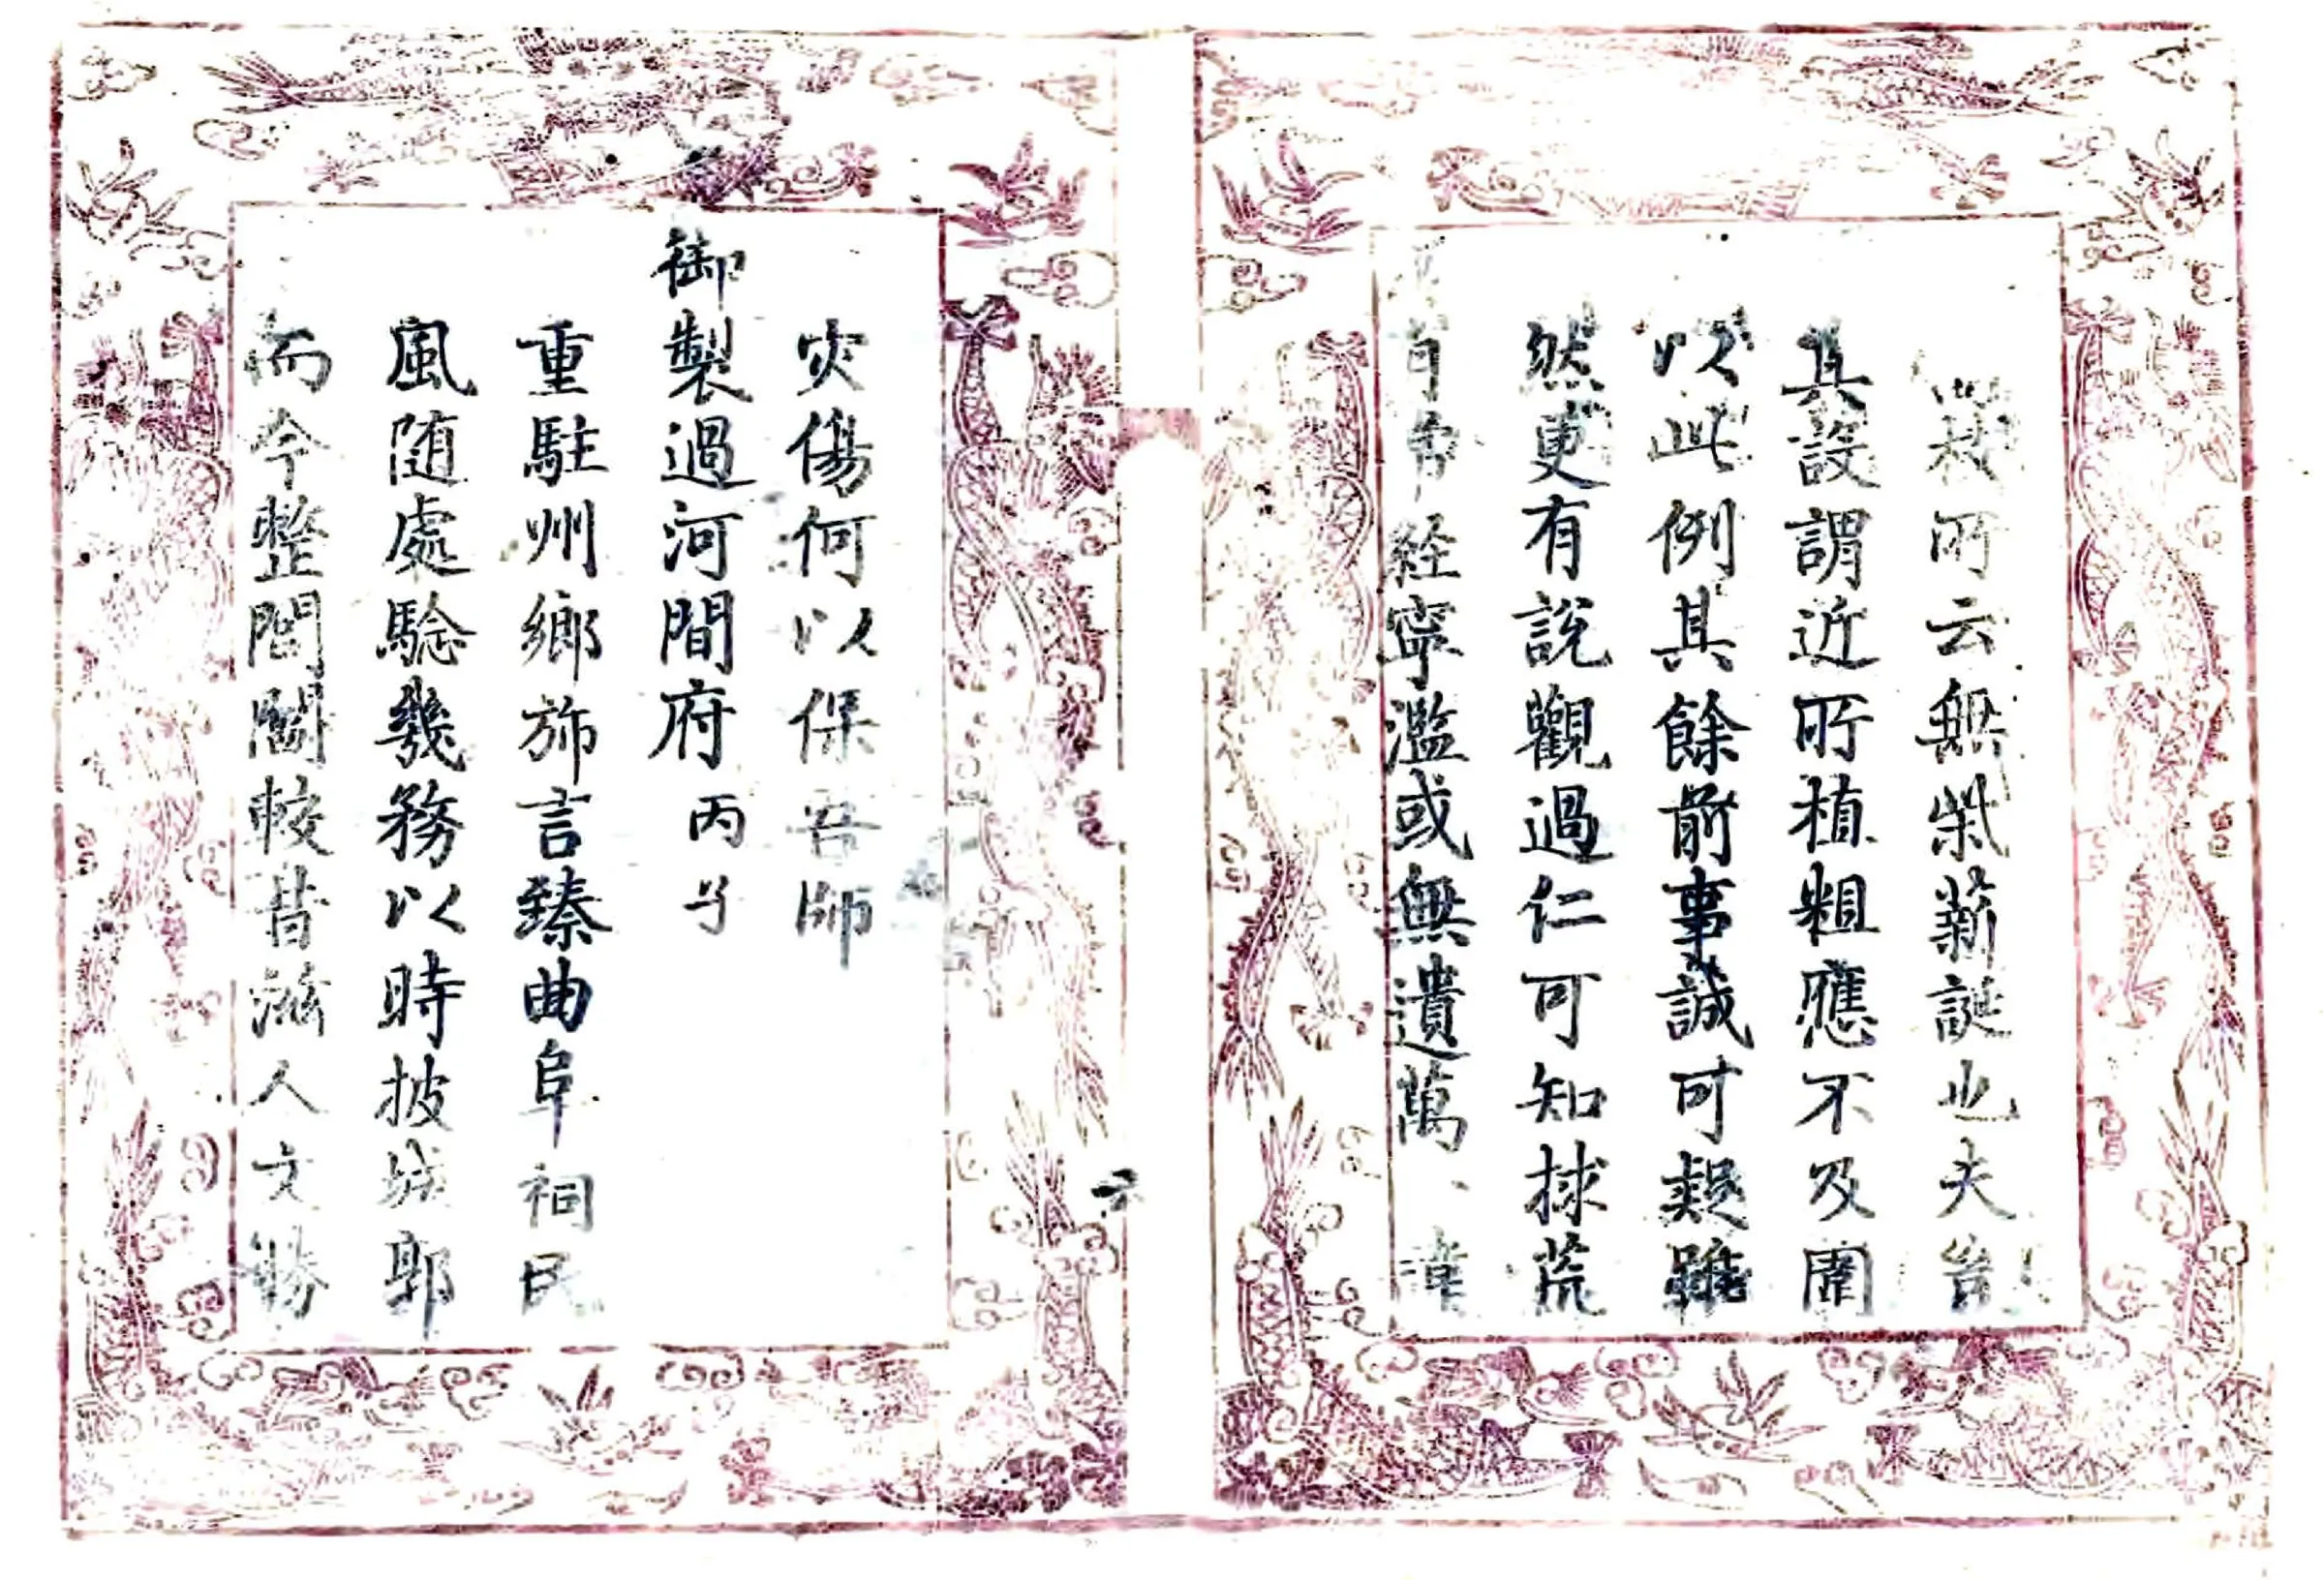 我所云無柴薪誕也夫豈
真設謂近所植粗應不及圍
以此例其餘前事誠可疑雖
然更有說觀過仁可知捄荒
經寧濫或無遺萬、
灾傷何以保吾師
御製過河間府丙子
重駐州鄉斾言臻曲阜祠民
風随處騐幾務以時披城郭
而今整閭閻較昔滋人文勝
六